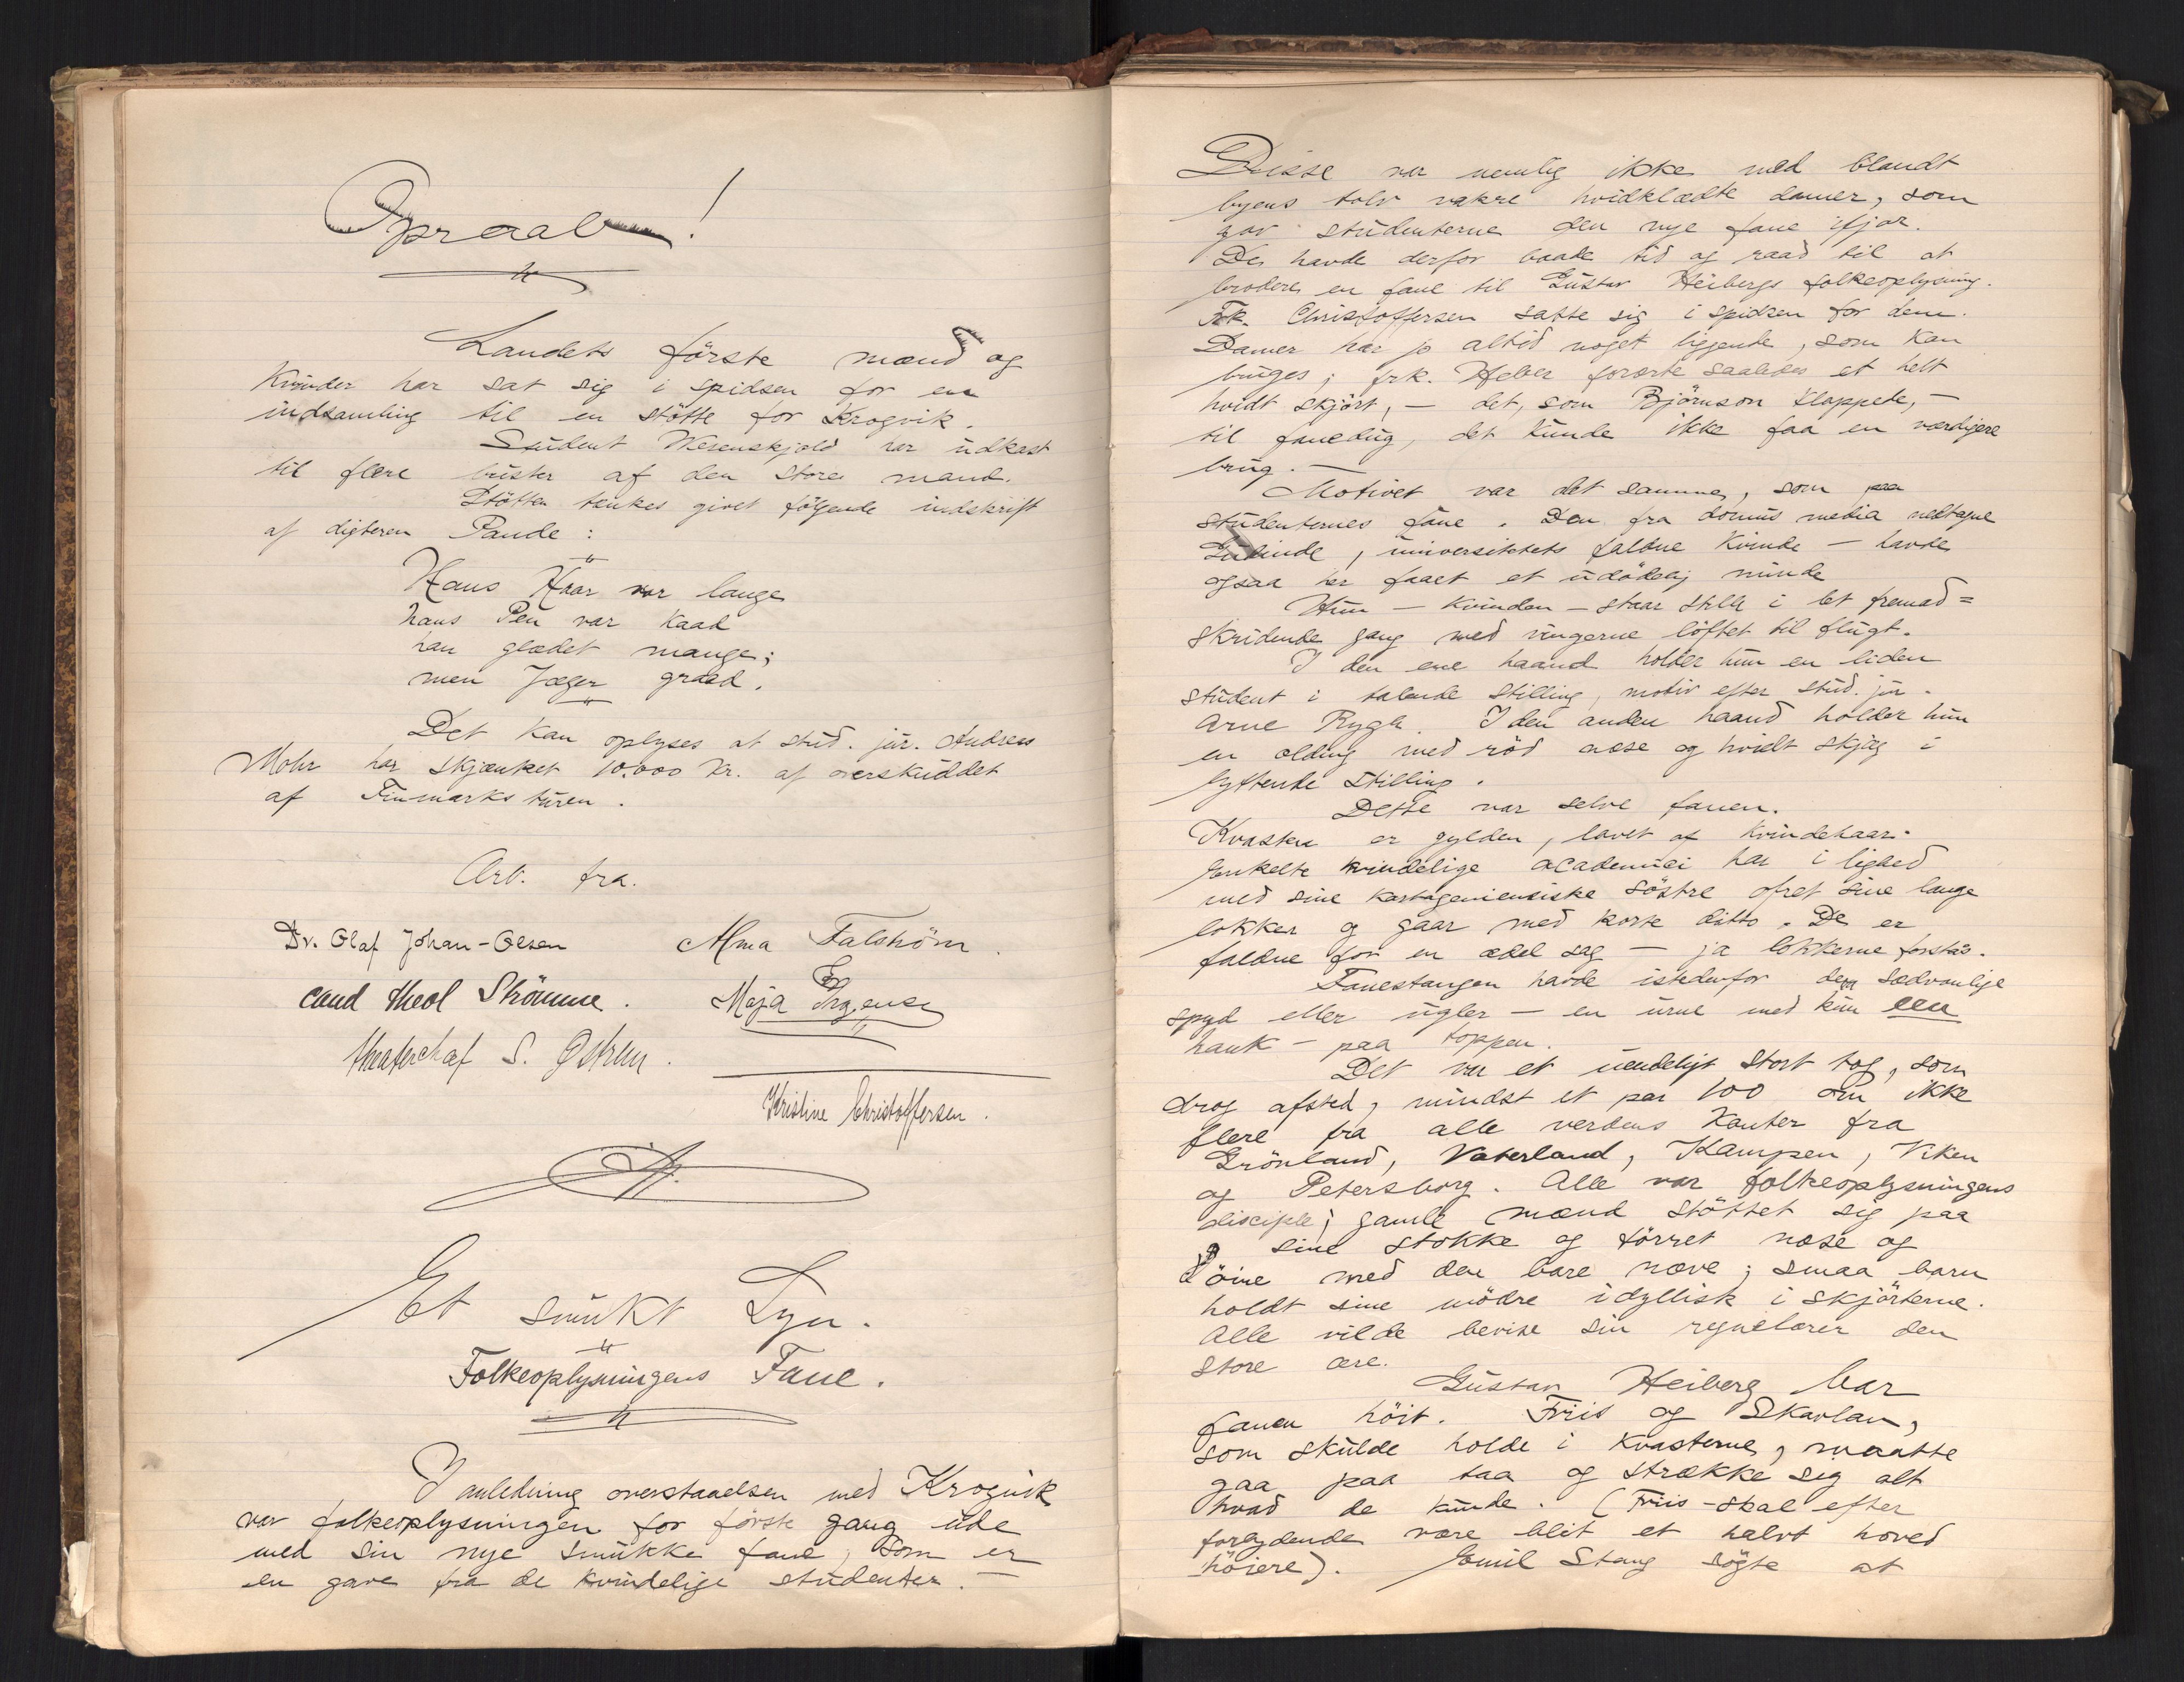 Opraab!
Landets förste mænd og
Kvinder har sat sig i spidsen for en
indsamling til en stötte for Krogvik.
Student Wesenskjold har udkast
til flere buster af den store mand.
Stötten tænkes givet fölgende indskrift
af digteren Paude:
Hans Haar var lange
hans Pen var kaad
han glædet mange;
men Jæger græd.
Det kan oplyses at stud. jur. Andreas
Mohr har skjænket 10.000 Kr. af overskuddet
af Finmarksturen.
Arb. fra.
Dr. Olaf Johan-Olsen Alma Falström.
cand theol Strömme. Maja
theaterchef S.
Kristine Christoffersen.
Et smukt Syn.
Folkeoplysningens Fane.
I anledning overstaaelsen med Krogvik
var folkeoplysningen for förste gang ude
med sin nye smukke fane, som er
en gave fra de kvindelige studenter. —
Disse var nemlig ikke med blandt
byens tolv vakre hvidklædte damer, som
gav studenterne den nye fane ifjor.
De havde derfor baade tid og raad til at
brodere en fane til Gustav Heibergs folkeoplysning.
Frk. Christoffersen satte sig i spidsen for dem.
Damer har jo altid noget liggende, som kan
bruges; frk. Heber forærte saaledes et helt
hvidt skjört, — det, som Björnson kloppede, —
til fanedug, det kunde ikke faa en værdigere
brug. —
Motivet var det samme, som paa
studenternes fane. Den fra domus media nedtagne
Gudinde, universitetets faldne Kvinde — havde
ogsaa her faaet et udödelig minde
Hun — Kvinden — staar stille i let fremad=
skridende gang med vingerne löftet til flugt.
I den ene haand holder hun en liden
student i talende stilling, motiv efter stud. jur.
Arne Rygh. I den anden haand holder hun
en olding med röd næse og hvidt skjæg i
lyttende stilling.
Dette var selve fanen.
Kvasten er gylden, lavet af kvindehaar.
Enkelte kvindelige academici har i lighed
med sine kartageniensiske söstre ofret sine lange
lokker og gaar med korte ditto. De er
faldne for en ædel sag — ja lokkerne forstås.
Fanestangen havde istedenfor den sædvanlige
spyd eller ugler — en urne med kun een
hank — paa toppen.
Det var et uendeligt stort tog, som
drog afsted, mindst et par 100 om ikke
flere fra alle verdens Kanter fra
Grönland, Vaterland, Kampen, Viken
og Petersborg. Alle var folkeoplysningens
disciple; gamle mænd stöttet sig paa
sine stokke og törret næse og
öine med den bare næve; smaa barn
holdt sine mödre idyllisk i skjörterne.
Alle vilde bevise sin regnelærer den
store ære.
Gustav Heiberg bar
fanen höit. Friis og Skavlan,
som skulde holde i kvasterne, maatte
gaa paa taa og strække sig alt
hvad de kunde. (Friis - skal efter
forlydende være blit et halvt hoved
höiere). Emil Stang sögte at